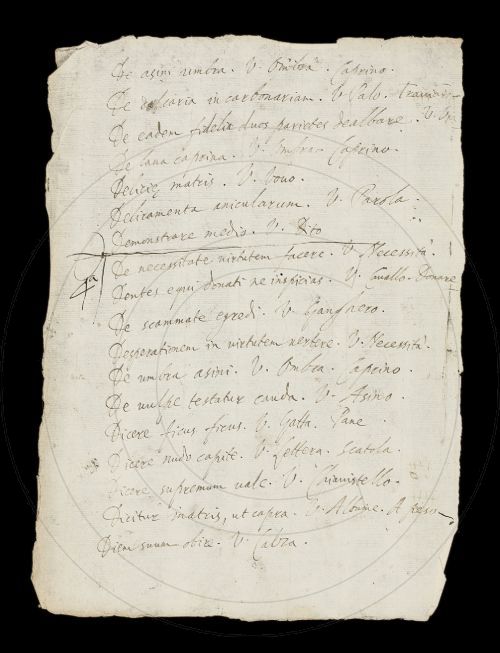 De asini umbra. V. Ombra. Caprino.
De calcaria in carbonariam. V. Palo.
De eadem fidelia duos parietes dealbare. V.
De lana caprina. V. Ombra. Caprino.
Delicię matris. V. Vovo.
Deliramenta anicularum. V. Parola.
Demonstrare medio. V. Dito
De necessitate virtutem facere. V. Necessità.
Dentes equi donati ne inspicias. V. Cavallo. Donare
De scammate egredi. V. Ganghero.
Desperationem in virtutem vertere. V. Necessità.
De umbra asini. V. Ombra. Caprino.
De vulpe testatur cauda. V. Asino.
Dicere ficus ficus. V. Gatta. Pane
Dicere nudo capite. V. Lettera. Scatola.
Dicere supremum vale. V. Chiavistello.
Dicitur matris, ut capra. V.
Diem suum obire. V. Calza.